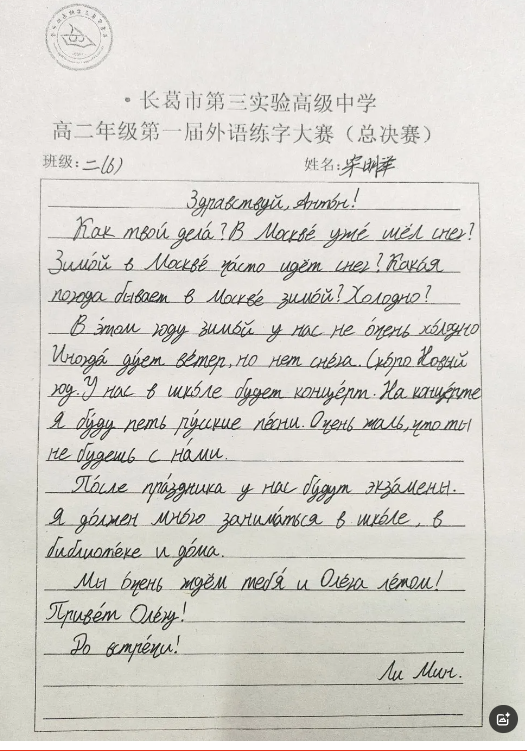 ·长葛市第三实验高级中学
高二年级第一届外语练字大赛（总决赛）
班级:二(6) 姓名:
Здравствуй, Анто́н!
Как твои́ дела́? В Москве́ уже́ шёл снег?
Зимо́й в Москве́ ча́сто идёт снег? Кака́я
пого́да быва́ет в Москве́ зимо́й? Хо́лодно?
В э́том году́ зимо́й у нас не о́чень хо́лодно
Иногда́ ду́ет ве́тер, но нет сне́га. Ско́ро Но́вый
год. У нас в шко́ле бу́дет конце́рт. На конце́рте
я бу́ду петь ру́сские пе́сни. О́чень жаль, что ты
не бу́дешь с на́ми.
По́сле пра́здника у нас бу́дут экза́мены.
Я до́лжен мно́го занима́ться в шко́ле, в
библиоте́ке и до́ма.
Мы о́чень ждём тебя́ и Оле́га ле́том!
Приве́т Оле́гу!
До встре́чи!
Ли Мин.